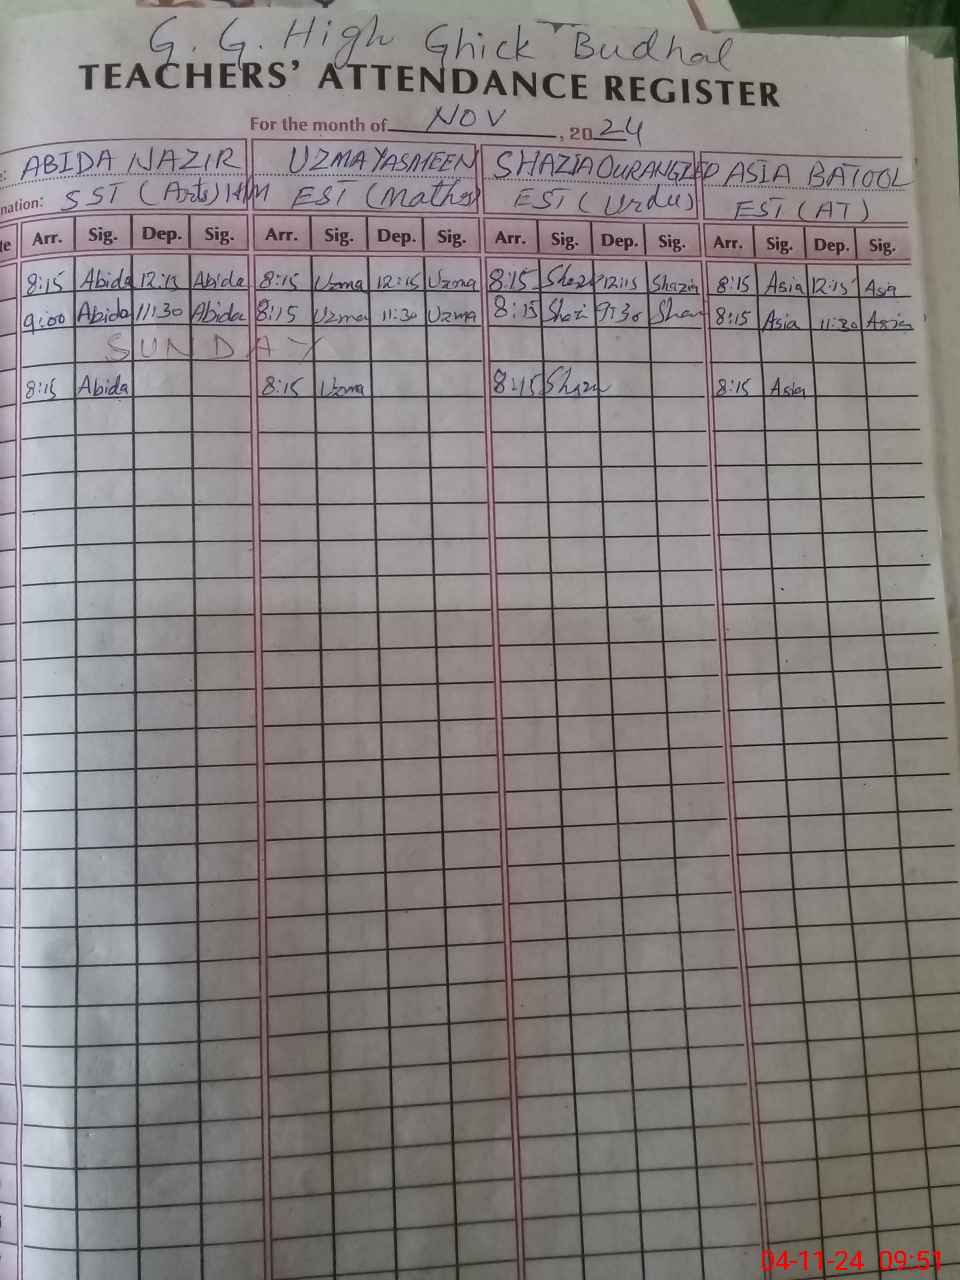 G. G. High Ghick Budhal
TEACHERS' ATTENDANCE REGISTER
For the month of NOV, 2024
ABIDA NAZIR UZMA YASMEEN SHAZIA OURANGZEB ASIA BATOOL
nation: SST (Arts) HM EST (Maths) EST (Urdu) EST (AT)
te Arr. Sig. Dep. Sig. Arr. Sig. Dep. Sig. Arr. Sig. Dep. Sig. Arr. Sig. Dep. Sig.
8:15 Abida 12:15 Abida 8:15 Uzma 12:15 Uzma 8:15 12:15 Shazia 8:15 Asia 12:15 Asia
9:00 Abida 11:30 Abida 8:15 Uzma 11:30 Uzma 8:15 8:15 Asia 11:30 Asia
SUNDAY
8:15 Abida 8:15 Uzma 8:15 8:15 Asia
04-11-24 09:51